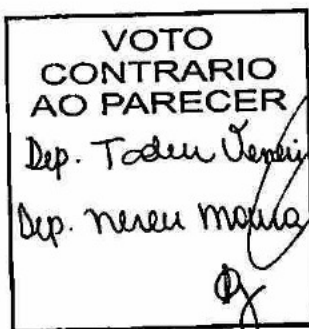 VOTO
CONTRARIO
AO PARECER
Dep. Tadeu Veneri
Dep. Nereu Moura